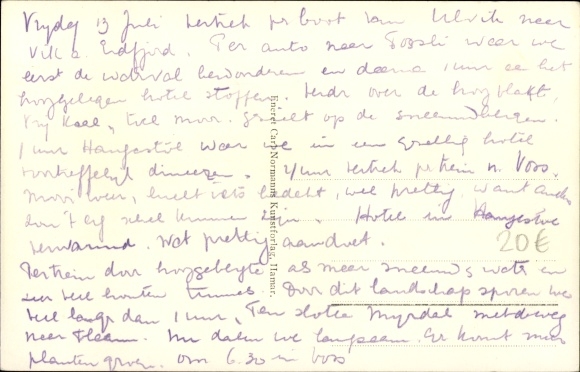 Vrijdag 13 Juli vertrek per boot van Ulvik naar
Vik i Eidfjord. Per auto naar Fossli waar we
eerst de waterval bewonderen en daarna 1 uur aan het
hooggelegen hotel stoppen. Verder over de hoogvlakte,
vrij kaal, veel mooi gezicht op de sneeuwbergen.
1 uur Haugastöl waar we in een gezellig hotel
voortreffelijk dineeren. 4 uur vertrek p. trein n. Voss.
Mooi weer, lucht iets bedekt, wel prettig, want anders
zou 't erg schel kunnen zijn. Hotel in Haugastöl
verwarmd. Wat prettig aandoet.
Per trein door hooggebergte als maar sneeuw, water en
zeer veel houten tunnels. Door dit landschap sporen we
veel langer dan 1 uur. Ten slotte Myrdal met de weg
naar Flaam. Nu dalen we langzaam. Er komt meer
plantengroei. Om 6.30 in Voss
20€
Eneret Carl Normanns Kunstforlag, Hamar.